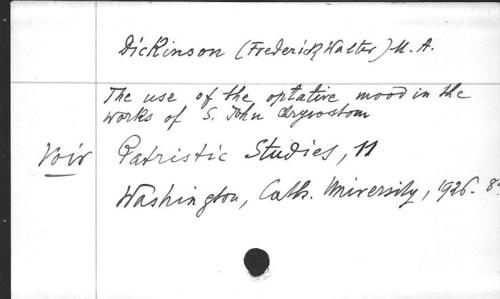 Dickinson (Frederick Walter) M. A.
The use of the optative mood in the
works of S. John Chrysostom
Voir Patristic Studies, 11
Washington, Cath. University, 1926. 8°